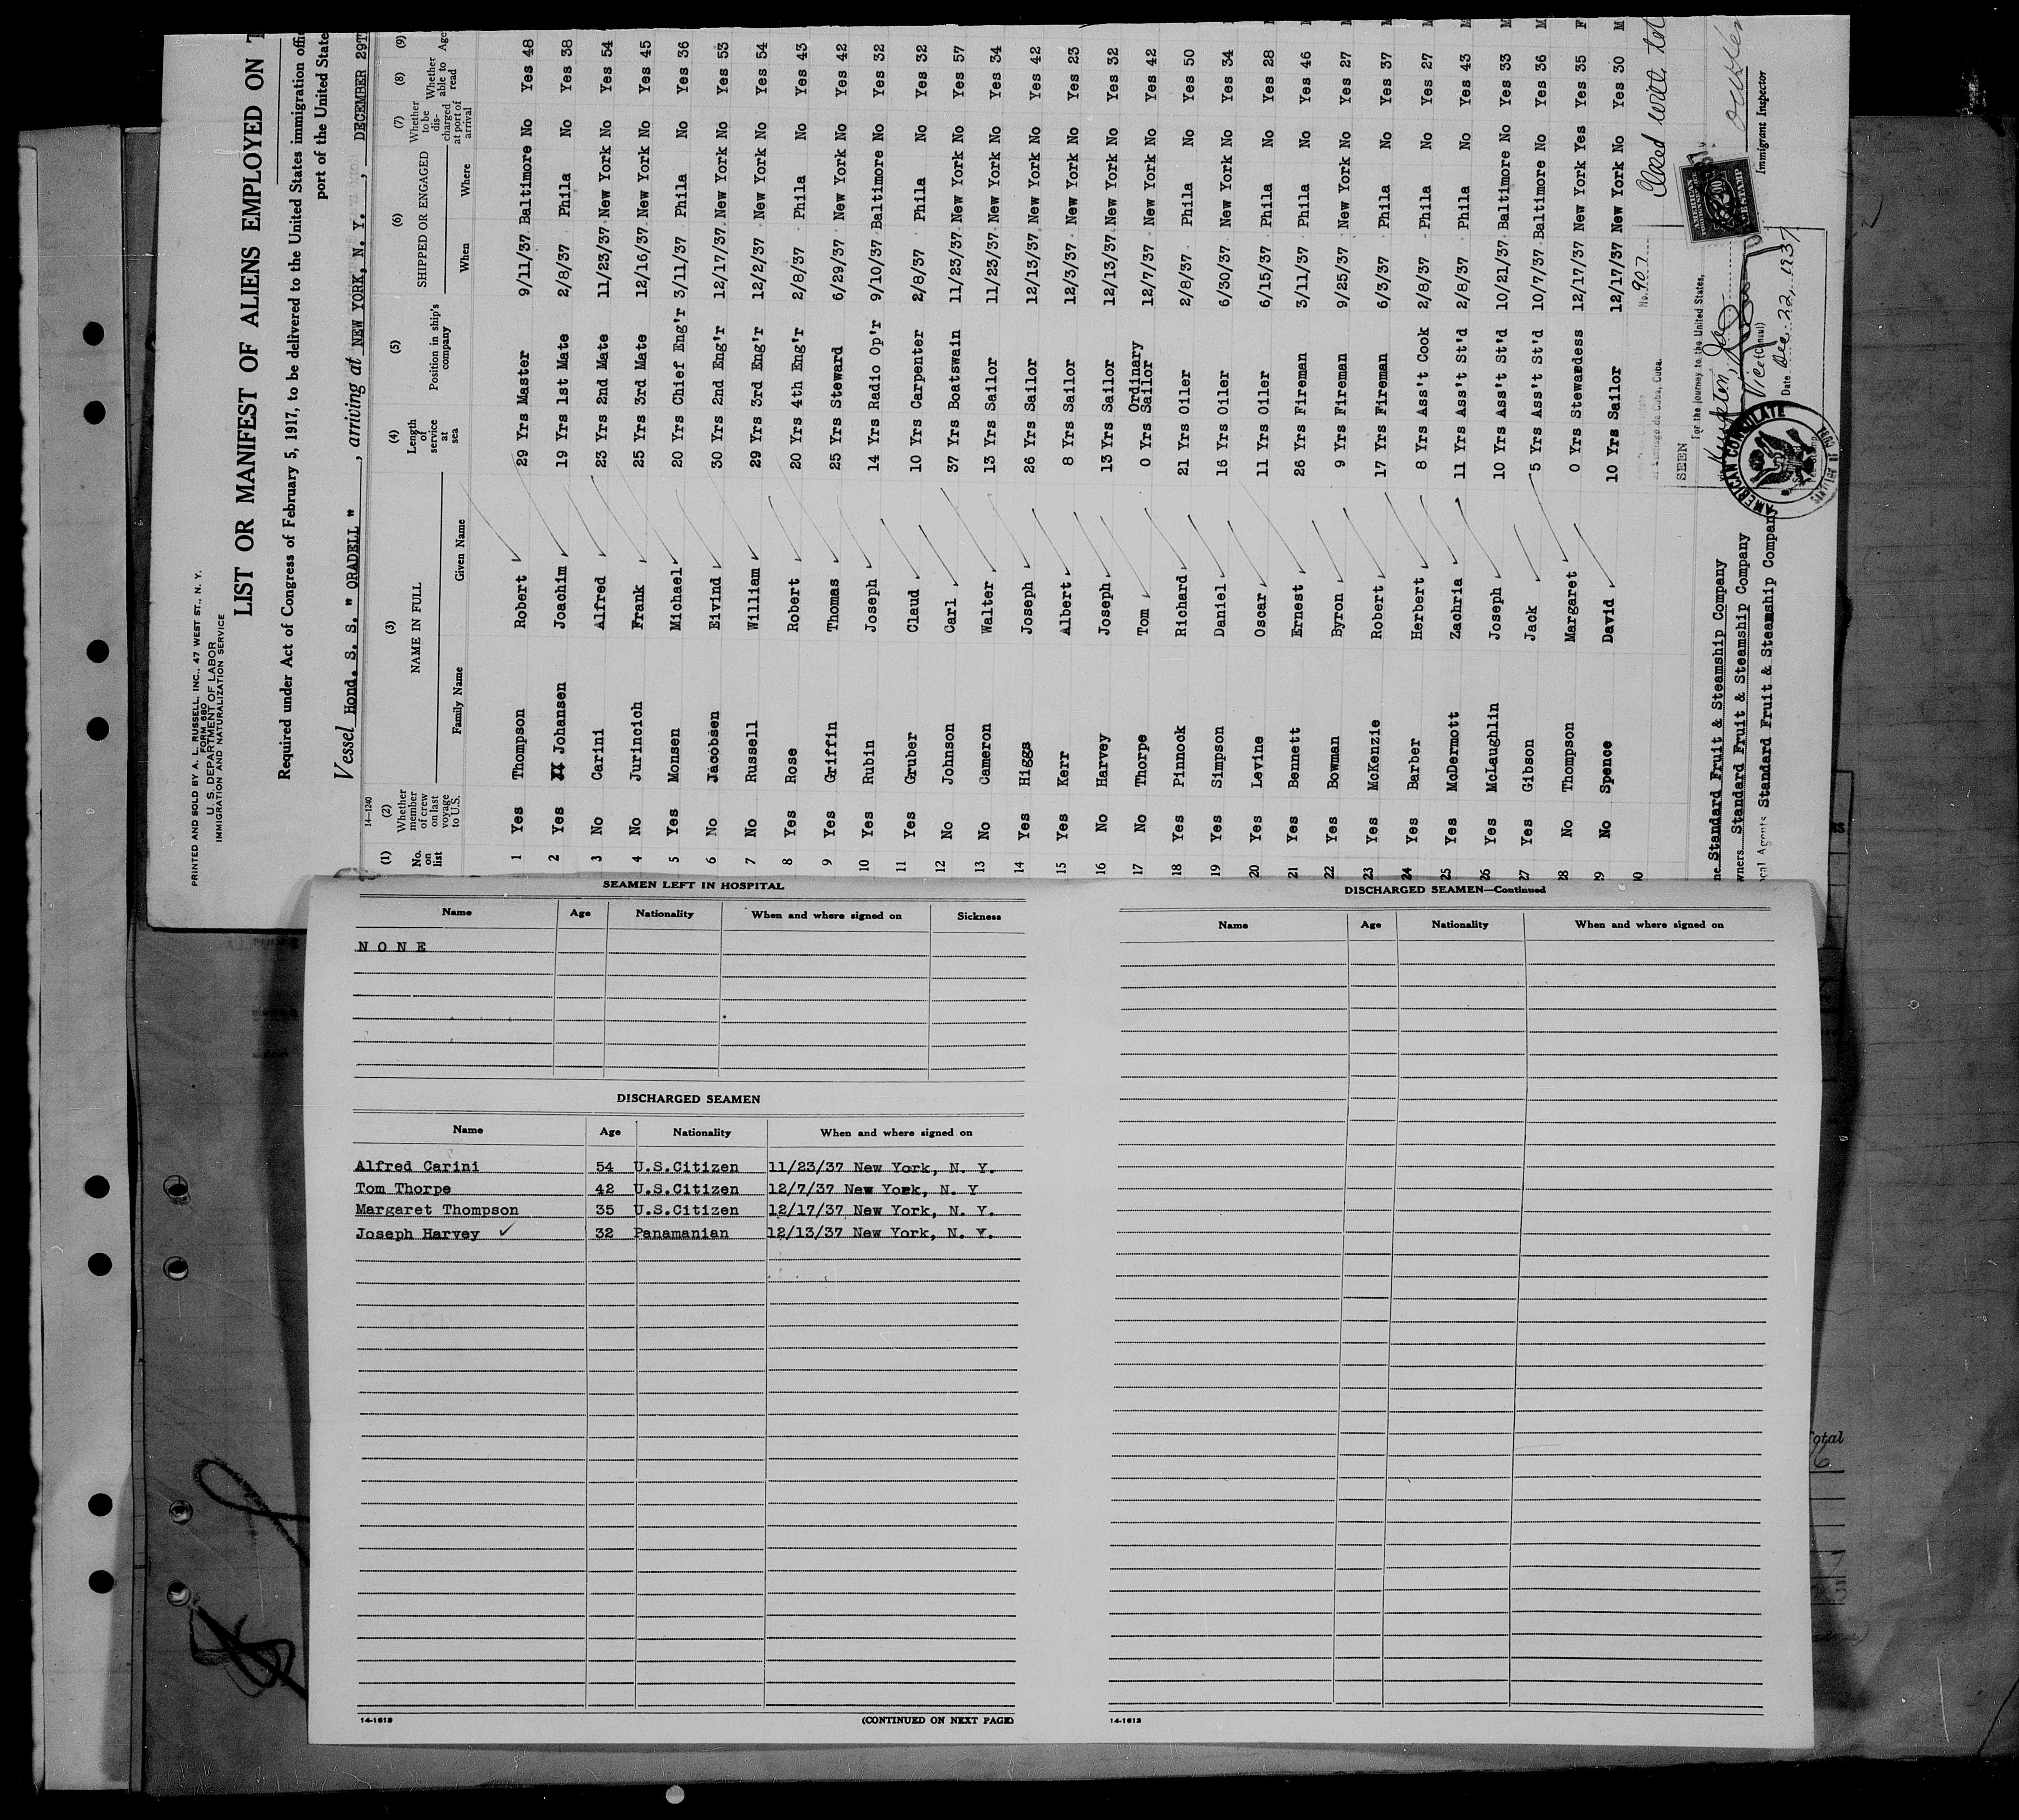 PRINTED AND SOLD BY A. L. RUSSELL, INC., 47 WEST ST., N. Y.
FORM 680
U. S. DEPARTMENT OF LABOR
IMMIGRATION AND NATURALIZATION SERVICE
LIST OR MANIFEST OF ALIENS EMPLOYED ON T
Required under Act of Congress of February 5, 1917, to be delivered to the United States immigration offi
port of the United State
Vessel Hond. S. S. " ORADELL " , arriving at NEW YORK, N. Y. , DECEMBER 29T
14-1240
(1) No. on list (2) Whether member of crew on last voyage to U.S. (3) NAME IN FULL Family Name Given Name (4) Length of service at sea (5) Position in ship's company (6) SHIPPED OR ENGAGED When Where (7) Whether to be discharged at port of arrival (8) Whether able to read (9) Age
1 Yes Thompson Robert 29 Yrs Master 9/11/37 Baltimore No Yes 48
2 Yes Johansen Joachim 19 Yrs 1st Mate 2/8/37 Phila No Yes 38
3 No Carini Alfred 23 Yrs 2nd Mate 11/23/37 New York No Yes 54
4 No Jurincich Frank 25 Yrs 3rd Mate 12/16/37 New York No Yes 45
5 Yes Monsen Michael 20 Yrs Chief Eng'r 3/11/37 Phila No Yes 36
6 No Jacobsen Eivind 30 Yrs 2nd Eng'r 12/17/37 New York No Yes 53
7 No Russell William 29 Yrs 3rd Eng'r 12/2/37 New York No Yes 54
8 Yes Rose Robert 20 Yrs 4th Eng'r 2/8/37 Phila No Yes 43
9 Yes Griffin Thomas 25 Yrs Steward 6/29/37 New York No Yes 42
10 Yes Rubin Joseph 14 Yrs Radio Op'r 9/10/37 Baltimore No Yes 32
11 Yes Gruber Claud 10 Yrs Carpenter 2/8/37 Phila No Yes 32
12 No Johnson Carl 37 Yrs Boatswain 11/23/37 New York No Yes 57
13 No Cameron Walter 13 Yrs Sailor 11/23/37 New York No Yes 34
14 Yes Higgs Joseph 26 Yrs Sailor 12/13/37 New York No Yes 42
15 Yes Kerr Albert 8 Yrs Sailor 12/3/37 New York No Yes 23
16 No Harvey Joseph 13 Yrs Sailor 12/13/37 New York No Yes 32
17 No Thorpe Tom 0 Yrs Ordinary Sailor 12/7/37 New York No Yes 42
18 Yes Pinnock Richard 21 Yrs Oiler 2/8/37 Phila No Yes 50
19 Yes Simpson Daniel 16 Yrs Oiler 6/30/37 New York No Yes 34
20 Yes Levine Oscar 11 Yrs Oiler 6/15/37 Phila No Yes 28
21 Yes Bennett Ernest 26 Yrs Fireman 3/11/37 Phila No Yes 46
22 Yes Bowman Byron 9 Yrs Fireman 9/25/37 New York No Yes 27
23 Yes McKenzie Robert 17 Yrs Fireman 6/3/37 Phila No Yes 37
24 Yes Barber Herbert 8 Yrs Ass't Cook 2/8/37 Phila No Yes 27
25 Yes McDermott Zachria 11 Yrs Ass't St'd 2/8/37 Phila No Yes 43 M
26 Yes McLaughlin Joseph 10 Yrs Ass't St'd 10/21/37 Baltimore No Yes 33 M
27 Yes Gibson Jack 5 Yrs Ass't St'd 10/7/37 Baltimore No Yes 36 M
28 No Thompson Margaret 0 Yrs Stewardess 12/17/37 New York Yes Yes 35 F
29 No Spence David 10 Yrs Sailor 12/17/37 New York No Yes 30 M
No. 907
SEEN
For the journey to the United States,
Vice Consul
Date Dec. 22, 1937
AMERICAN CONSULATE
Immigrant Inspector
ne Standard Fruit & Steamship Company
wners Standard Fruit & Steamship Company
cal Agents Standard Fruit & Steamship Company
SEAMEN LEFT IN HOSPITAL
Name Age Nationality When and where signed on Sickness
N O N E
DISCHARGED SEAMEN
Name Age Nationality When and where signed on
Alfred Carini 54 U.S.Citizen 11/23/37 New York, N. Y.
Tom Thorpe 42 U.S.Citizen 12/7/37 New York, N. Y
Margaret Thompson 35 U.S.Citizen 12/17/37 New York, N. Y.
Joseph Harvey 32 Panamanian 12/13/37 New York, N. Y.
14-1613 (CONTINUED ON NEXT PAGE)
DISCHARGED SEAMEN—Continued
Name Age Nationality When and where signed on
14-1613
otal